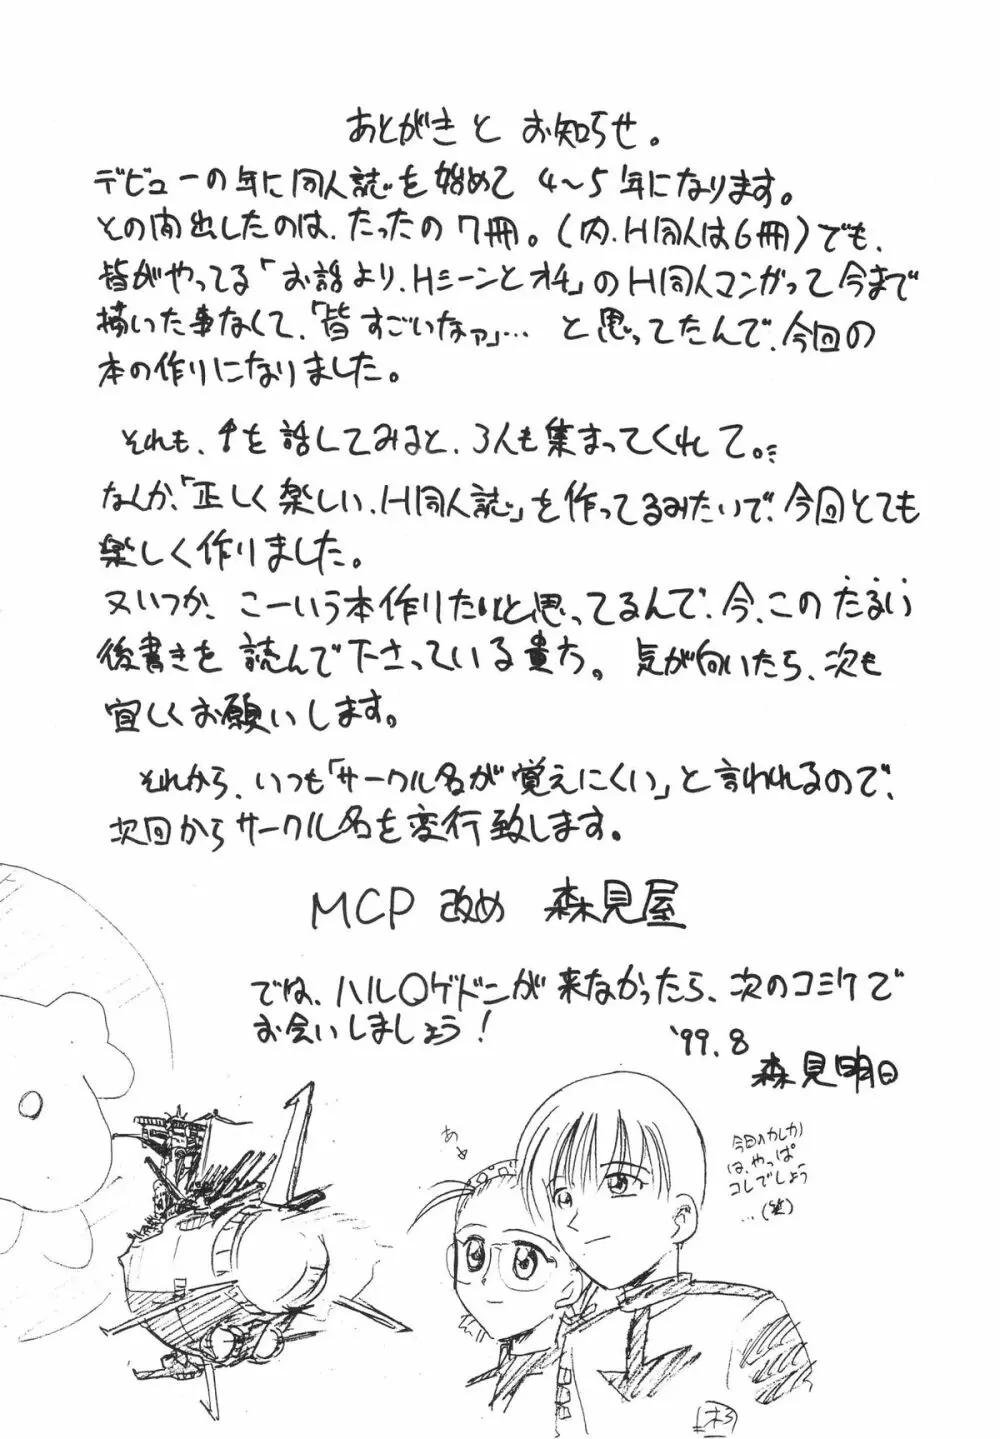 あとがきと お知らせ。
デビューの年に同人誌を始めて 4〜5年になります。
その間出したのは、たったの7冊。(内、H同人は6冊)でも、
皆がやってる「お話より、Hシーンとオチ」のH同人マンガって今まで
描いた事なくて、「皆すごいなァ」… と思ってたんで、今回の
本の作りになりました。
それも、↑を話してみると、3人も集まってくれて。
なんか、「正しく楽しい、H同人誌」を作ってるみたいで、今回とても
楽しく作りました。
又いつか、こーいう本作りたいと思ってるんで、今、このたるい
後書きを 読んで下さっている貴方。気が向いたら、次も
宜しくお願いします。
それから、いつも「サークル名が覚えにくい」と言われるので、
次回からサークル名を変行致します。
MCP 改め 森見屋
では、ハル○ゲドンが来なかったら、次のコミケで
お会いしましょう!
'99.8
森見明日
あ
今回のカシカ
は、やっぱ
コレでしょう
…(笑)